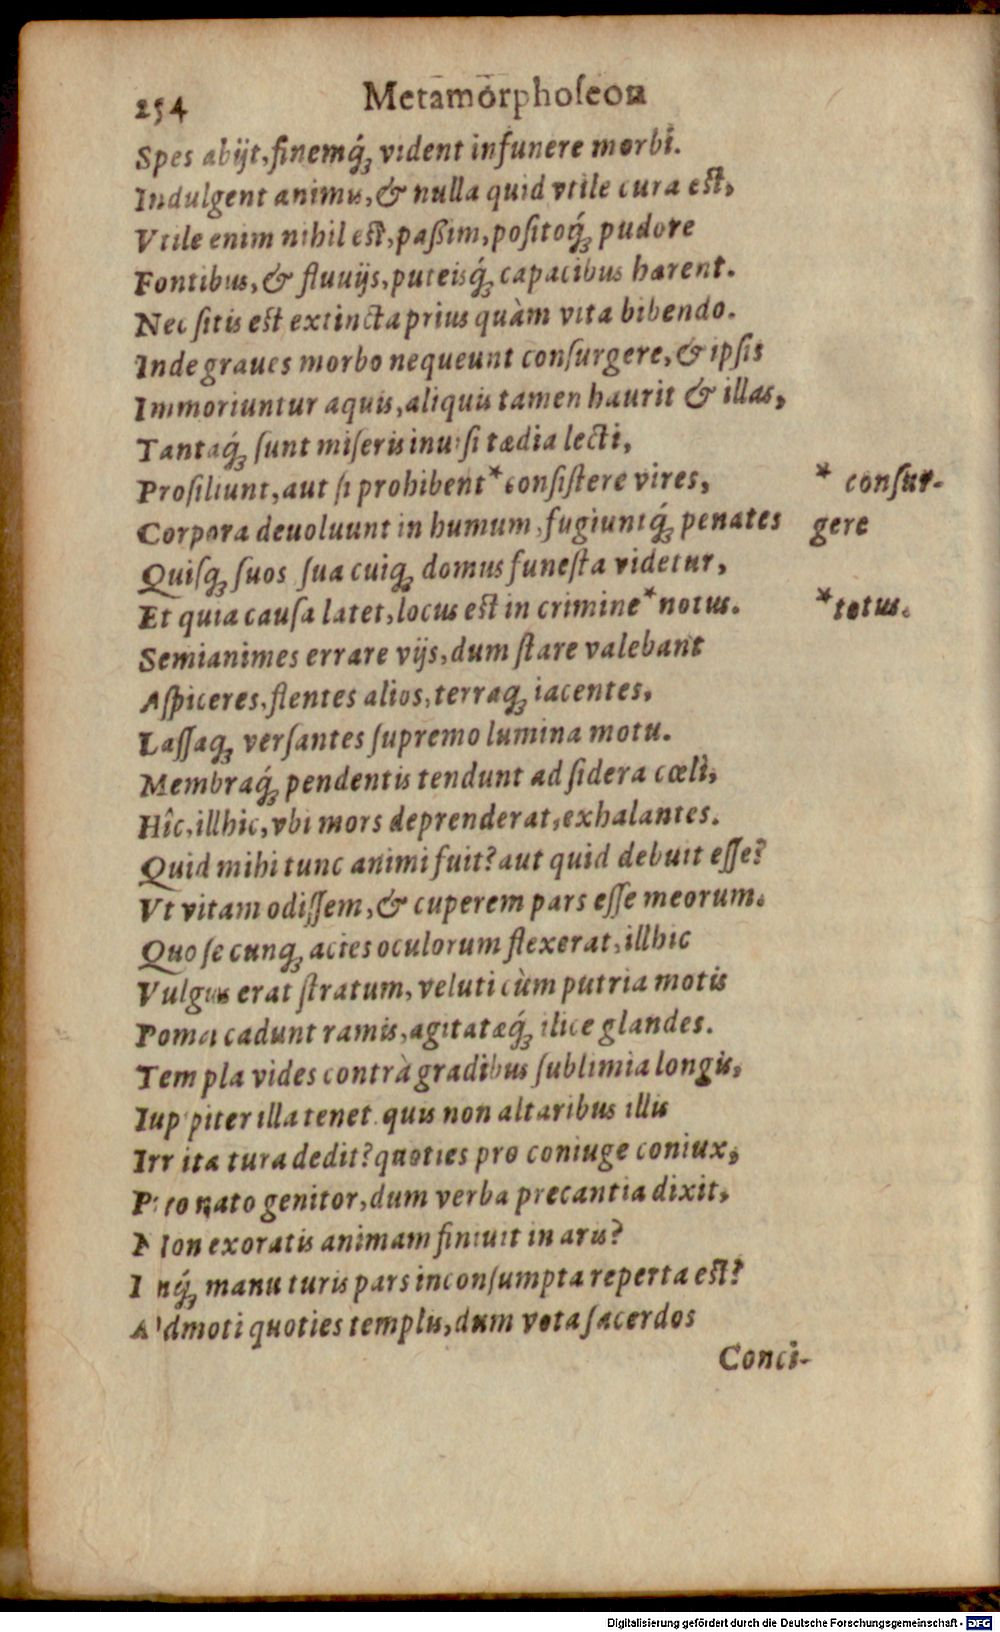 254 Metamorphoſeon
Spes abijt, finemq́; vident in funere morbi.
Indulgent animis, & nulla quid vtile cura eſt,
Vtile enim nihil eſt, paßim, poſitoq́; pudore
Fontibus, & fluuijs, puteisq́; capacibus hærent.
Nec ſitis eſt extincta prius quàm vita bibendo.
Inde graues morbo nequeunt conſurgere, & ipſis
Immoriuntur aquis, aliquis tamen haurit & illas,
Tantaq́; ſunt miſeris inuiſi tædia lecti,
Proſiliunt, aut ſi prohibent * conſiſtere vires, * conſur-
Corpora deuoluunt in humum, fugiuntq́; penates gere
Quiſq; ſuos ſua cuiq; domus funeſta videtur,
Et quia cauſa latet, locus eſt in crimine * notus. * totus.
Semianimes errare vijs, dum ſtare valebant
Aſpiceres, flentes alios, terraq; iacentes,
Laſſaq; verſantes ſupremo lumina motu.
Membraq́; pendentis tendunt ad ſidera cœli,
Hîc, illhic, vbi mors deprenderat, exhalantes.
Quid mihi tunc animi fuit? aut quid debuit eſſe?
Vt vitam odiſſem, & cuperem pars eſſe meorum.
Quo ſe cunq; acies oculorum flexerat, illhic
Vulgus erat ſtratum, veluti cùm putria motis
Poma cadunt ramis, agitatæq́; ilice glandes.
Templa vides contrà gradibus ſublimia longis,
Iuppiter illa tenet. quis non altaribus illis
Irrita tura dedit? quoties pro coniuge coniux,
Pro nato genitor, dum verba precantia dixit,
Non exoratis animam finiuit in aris?
Inq́; manu turis pars inconſumpta reperta eſt?
Admoti quoties templis, dum vota ſacerdos
Conci-
Digitalisierung gefördert durch die Deutsche Forschungsgemeinschaft - DFG